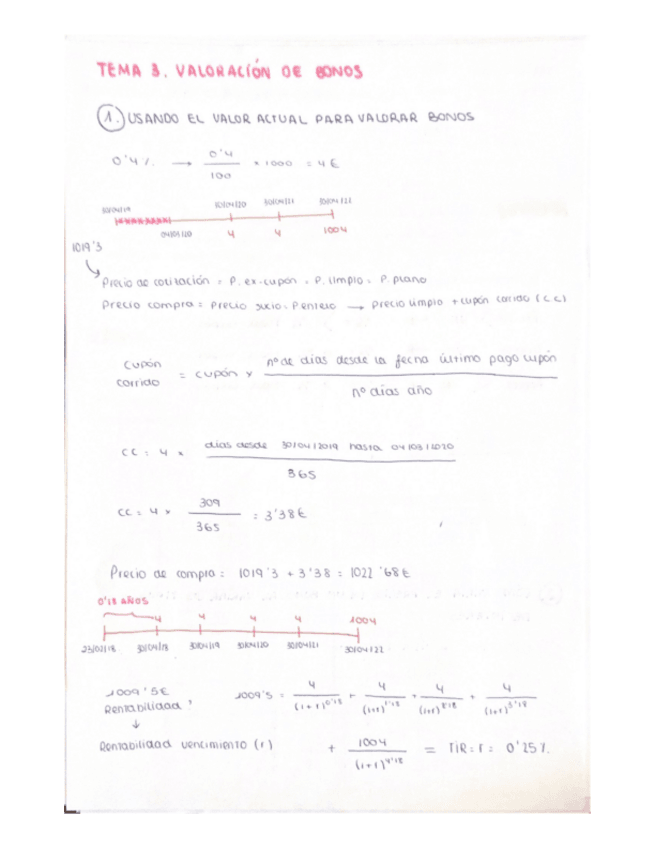 TEMA 3. VALORACIÓN DE BONOS
1. USANDO EL VALOR ACTUAL PARA VALORAR BONOS
0'4 %. → 0'4 / 100 × 1000 = 4 €
30/04/19 10/04/20 30/04/21 30/04/22
04/01/20 4 4 1004
1019'3
Precio de cotización = P. ex-cupón = P. limpio = P. plano
Precio compra = Precio sucio = P entero → Precio limpio + cupón corrido (CC)
Cupón corrido = cupón × nº de días desde la fecha último pago cupón / nº días año
CC = 4 × días desde 30/04/2019 hasta 04/03/2020 / 365
CC = 4 × 309 / 365 = 3'38€
Precio de compra = 1019'3 + 3'38 = 1022'68€
0'18 AÑOS
4 4 4 4 1004
23/02/18 30/04/18 30/04/19 30/04/20 30/04/21 30/04/22
1009'5€ 1009'5 = 4 / (1+r)^0'18 + 4 / (1+r)^1'18 + 4 / (1+r)^2'18 + 4 / (1+r)^3'18
Rentabilidad?
↓
Rentabilidad vencimiento (r) + 1004 / (1+r)^4'18 = TIR = r = 0'25%.